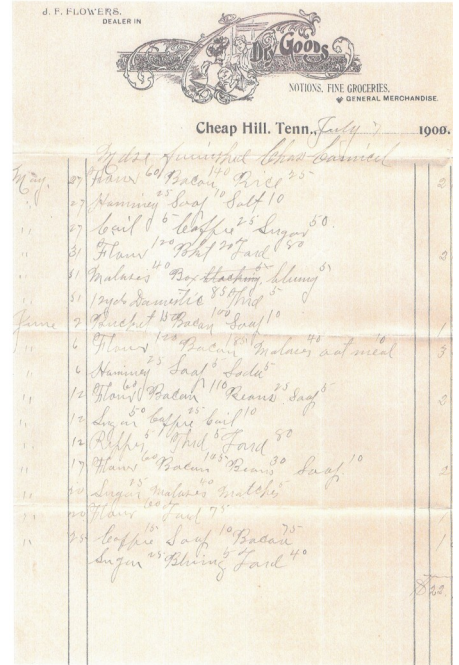 J. F. FLOWERS.
DEALER IN
Dry Goods
NOTIONS, FINE GROCERIES,
& GENERAL MERCHANDISE.
Cheap Hill, Tenn., July 7 1900.
Mdse furnished Chas
May, 27 Flour 60 Bacon 140 Rice 25 2
" 27 Hominey 25 Soap 10 Salt 10
" 27 Coil 5 Coffie 25 Sugar 50
" 31 Flour 120 20 Lard 80 2
" 31 Malases 40 Box bluing 5
" 31 12 yds Domestic 85 Thrd 5
June 2 Bacon 100 Soap 10 1
" 6 Flour 120 Bacon 185 Malases 40 oat meal 10 3
" 6 Hominey 25 Soap 5 Soda 5
" 12 Flour 60 Bacon 110 Beans 25 Soap 5 2
" 12 Sugar 50 Coffie 25 Coil 10
" 12 5 Thrd 5 Lard 80
" 17 Flour 60 Bacon 105 Beans 30 Soap 10 2
" 20 Sugar 25 malases 40 Matches 5
" 20 Flour 60 Lard 75 1
" 25 Coffie 15 Soap 10 Bacon 75 1
Sugar 25 Bluing 5 Lard 40
$22